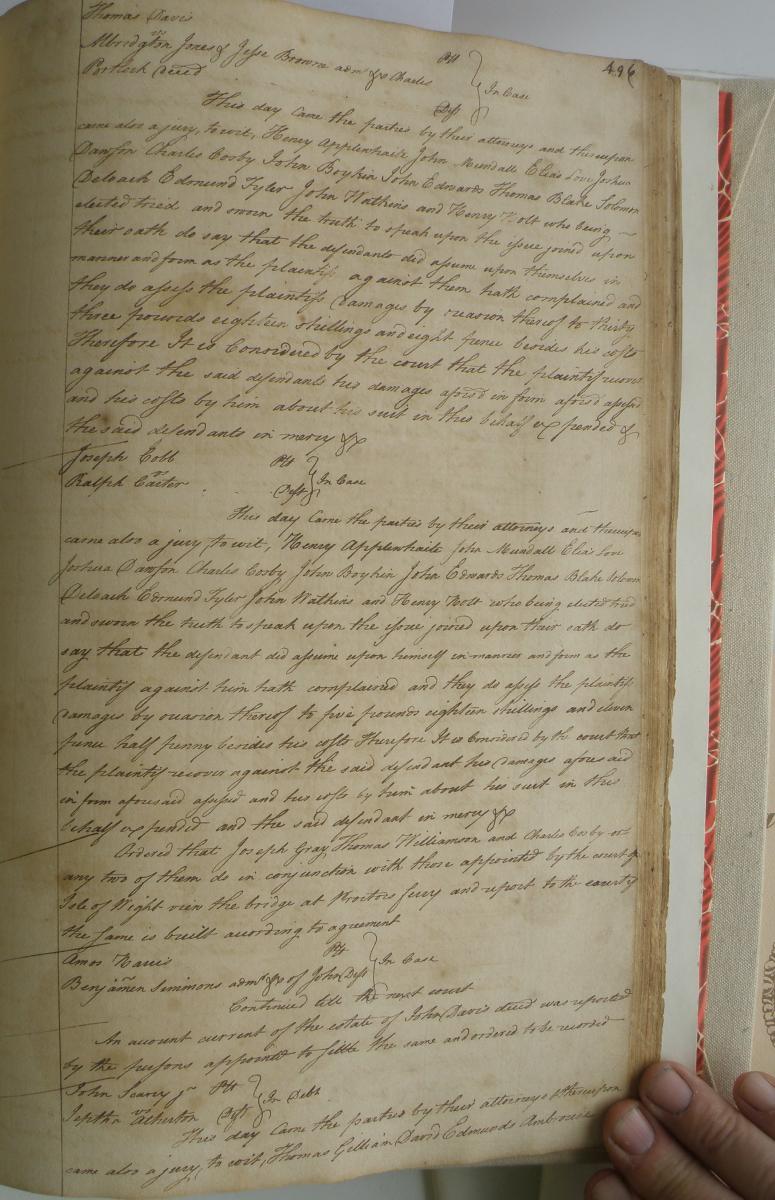 Thomas Davis Plt
vs In Case 496
Albridgton Jones & Jesse Browne admrs &c Charles
Portlock decd Deft
This day Came the parties by their attorneys and thereupon
came also a jury, to wit, Henry Applewhaite John Mundall Elias Love Joshua
Dawson Charles Cosby John Boykin John Edwards Thomas Blake Solomon
Deloach Edmund Tyler John Watkins and Henry Holt who being
elected tried and sworn the truth to speak upon the issue joined upon
their oath do say that the defendants did assume upon themselves in
manner and form as the plaintiff against them hath complained and
they do assess the plaintiffs damages by reason thereof to thirty
three pounds eighteen shillings and eight pence besides his costs
Therefore It is Considered by the court that the plaintiff recover
against the said defendants his damages aforsd in form aforsd assessed
and his costs by him about his suit in this behalf expended &
the said defendants in mercy &c
Joseph Cobb Plt
vs In Case
Ralph Carter Deft
This day Came the parties by their attorneys and thereupon
came also a jury, to wit, Henry Applewhaite John Mundall Elias Love
Joshua Dawson Charles Cosby John Boykin John Edwards Thomas Blake Solomon
Deloach Edmund Tyler John Watkins and Henry Holt who being elected tried
and sworn the truth to speak upon the issue joined upon their oath do
say that the defendant did assume upon himself in manner and form as the
plaintiff against him hath complained and they do assess the plaintiffs
damages by reason thereof to five pounds eighteen shillings and eleven
pence half penny besides his costs Therefore It is Considered by the court that
the plaintiff recover against the said defendant his damages aforesaid
in form aforesaid assessed and his costs by him about his suit in this
behalf expended and the said defendant in mercy &c
Ordered that Joseph Gray Thomas Williamson and Charles Cosby or
any two of them do in conjunction with those appointed by the court of
Isle of Wight view the bridge at Proctors ferry and report to the court if
the same is built according to agreement
Amos Plt
vs In Case
Benjamen Simmons admr &c of John Deft
Continued till the next court
An account current of the estate of John Davis decd was reported
by the persons appointed to settle the same and ordered to be recorded
John Searcy jr Plt
vs In Debt
Jeptha Atherton Deft
This day Came the parties by their attorneys & thereupon
came also a jury, to wit, Thomas Gilliam David Edmunds Ambrose